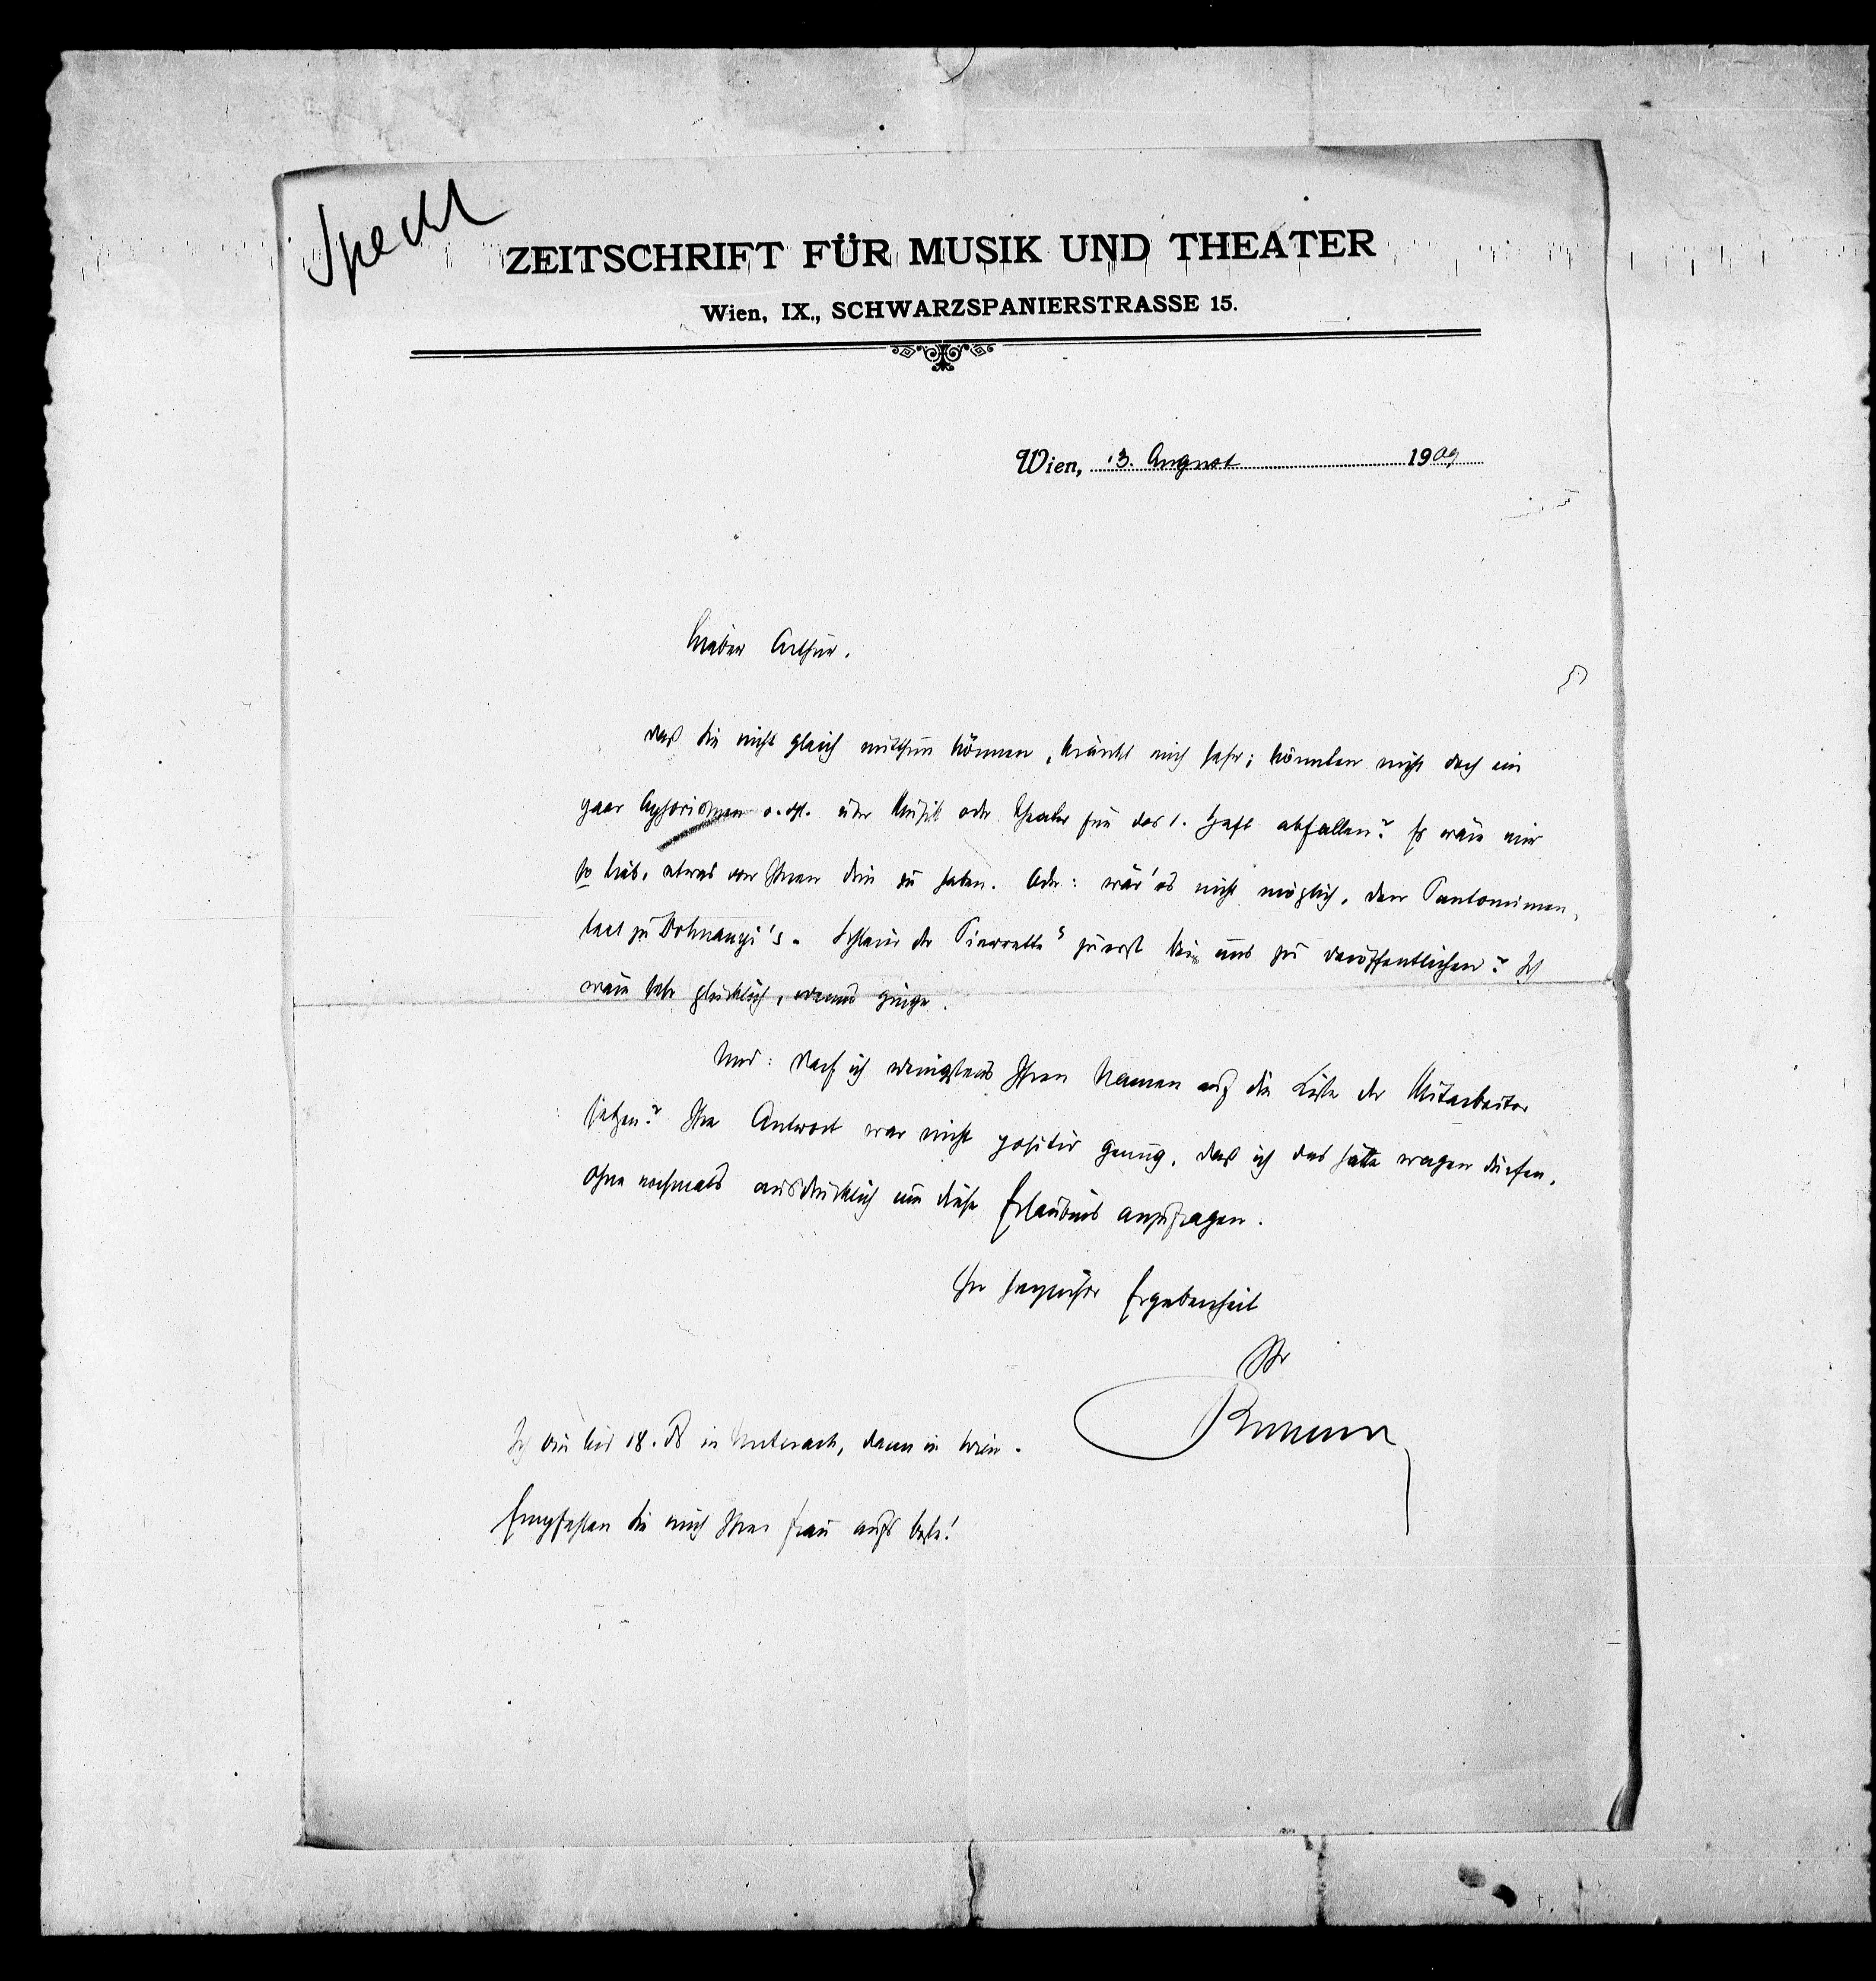 Specht
ZEITSCHRIFT FÜR MUSIK UND THEATER
Wien, IX., SCHWARZSPANIERSTRASSE 15.
Wien, 13. August 1909
Lieber Arthur.
daß Sie nicht gleich mitthun können, kränkt mich sehr; könnten nicht doch ein
paar Aphorismen o. dgl. über Musik oder Theater für das 1. Heft abfallen? Es wäre mir
so lieb, etwas von Ihnen drin zu haben. Oder: wär's nicht möglich, den Pantomimen-
text zu Dohnanyi's „Schleier der Pierrette“ zuerst bei uns zu veröffentlichen? Ich
wäre sehr glücklich, wenns ginge.
Und: darf ich wenigstens Ihren Namen auf die Liste der Mitarbeiter
setzen? Ihre Antwort war nicht positiv genug, daß ich das hätte wagen dürfen,
ohne nochmals ausdrücklich um diese Erlaubnis anzufragen.
In herzlicher Ergebenheit
Ihr
Ich bin bis 18. d in Unterach, dann in Wien.
Empfehlen Sie mich Ihrer Frau aufs beste!